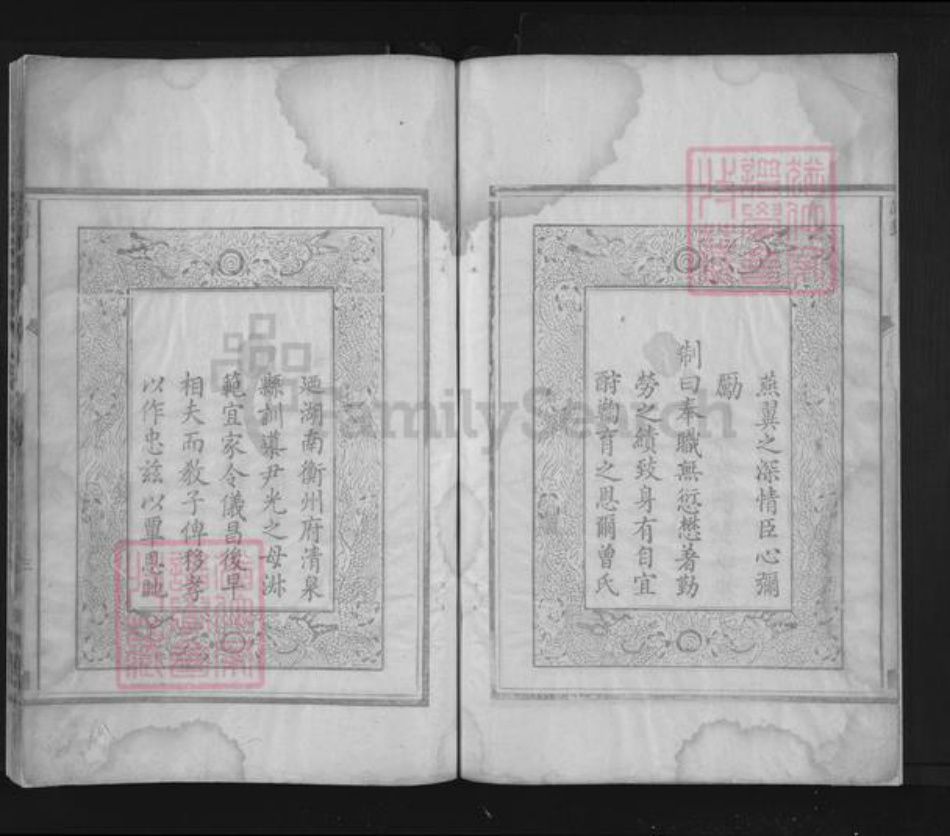 燕翼之深情臣心彌
勵
制曰奉職無愆懋著勤
勞之績致身有自宜
酧勤育之恩爾曾氏
廼湖南衡州府清泉
縣訓導尹光之母淋
範宜家令儀昌後早
相夫而教子俾移孝
以作忠茲以覃恩貤
FamilySearch